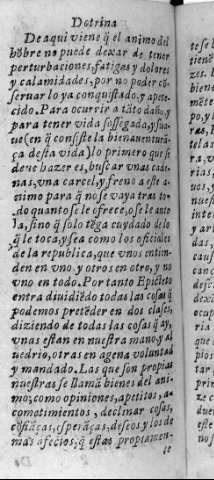 Dotrina
De aqui viene q̃ el animo del
hõbre no puede dexar de tener
perturbaciones, fatigas y dolores
y calamidades, por no poder cõ-
seruar lo ya conquistado, y apete-
cido. Para ocurrir a tãto daño, y
para tener vida sossegada, y sua-
ue (en q̃ consiste la bienauenturã-
ça desta vida) lo primero que se
deue hazer es, buscar vnas cade-
nas, vna carcel, y freno a este a-
nimo para q̃ no se vaya tras to-
do quanto se le ofrece, o se le anto
la, sino q̃ solo tẽga cuydado de lo
q̃ le toca, y sea como los oficiales
de la republica, que vnos entien-
den en vno, y otros en otro, y no
vno en todo. Por tanto Epicteto
entra diuidiẽdo todas las cosas q̃
podemos pretẽder en dos clases,
diziendo de todas las cosas q̃ ay,
vnas estan en nuestra mano, y al
uedrio, otras en agena voluntad
y mandado. Las que son propias
nuestras se llamã bienes del ani-
mo; como opiniones, apetitos, a-
cometimientos, declinar cosas,
cõfiãças, esperãças, deseos y los de
mas afectos, q̃ estas propiamen-
te